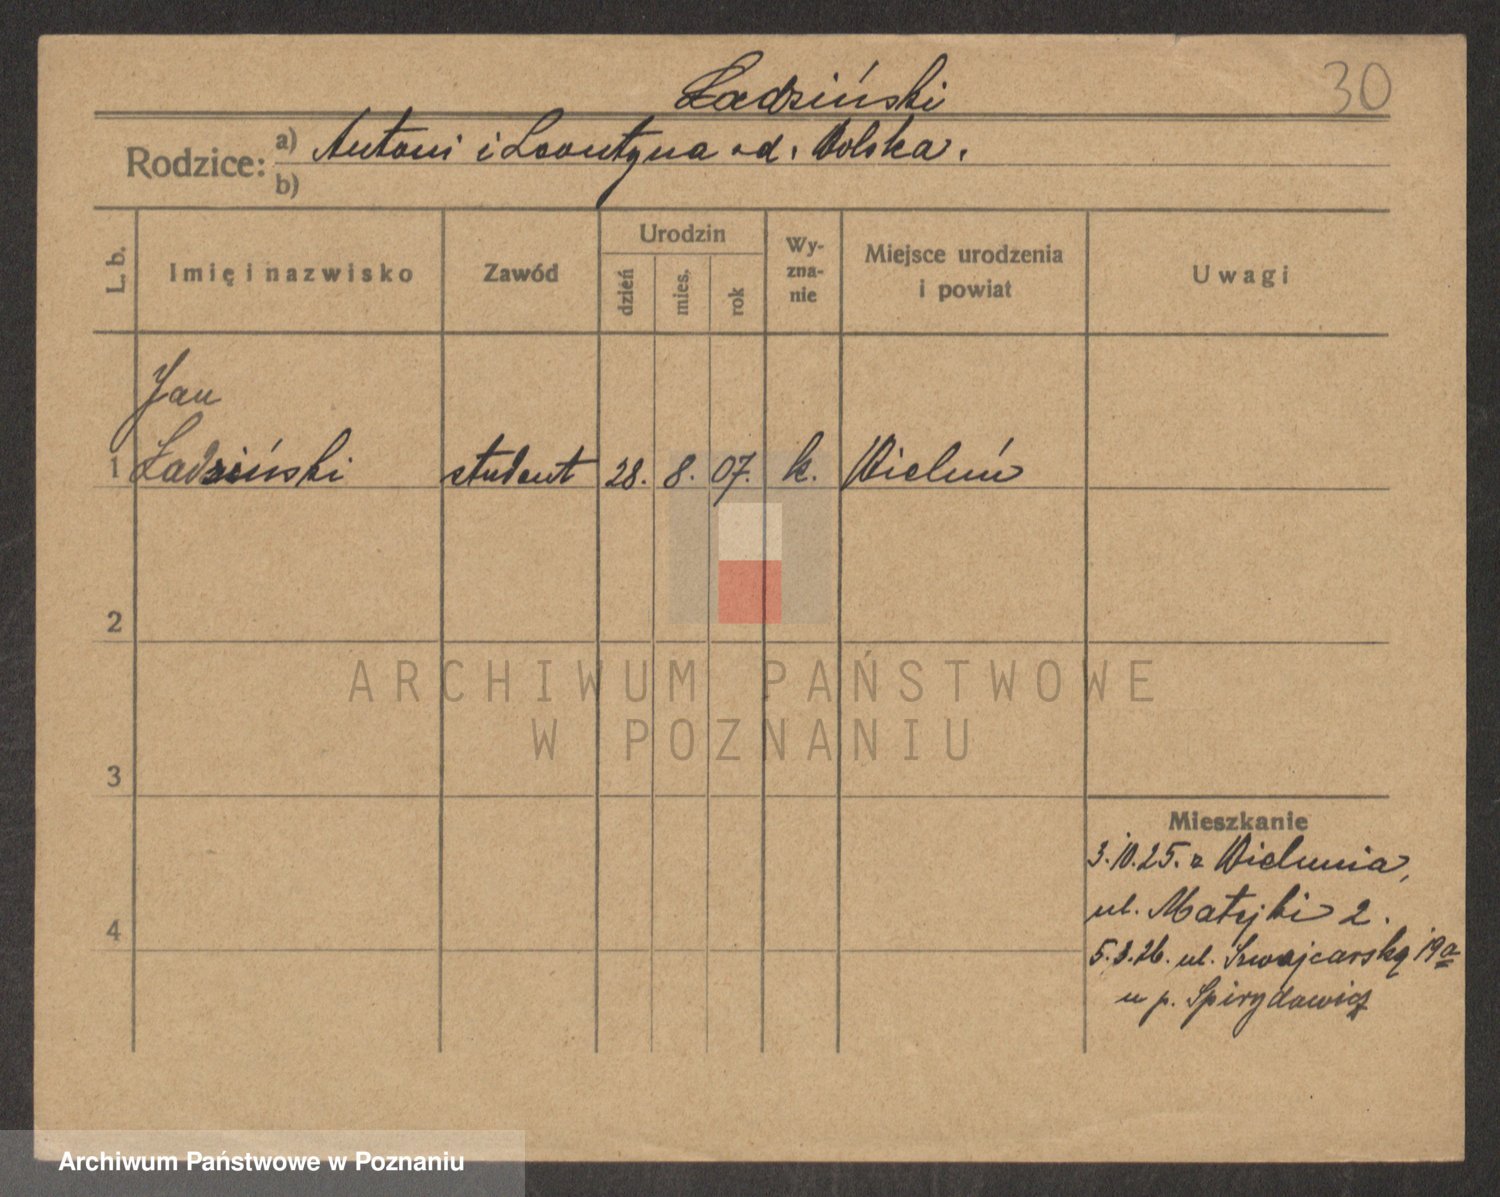 30
Ładziński
Rodzice: a) Antoni i Leontyna od. Wolska.
b)
L. b.
Imię i nazwisko
Zawód
Urodzin
dzień
mies.
rok
Wy-
zna-
nie
Miejsce urodzenia
i powiat
Uwagi
Jan
1 Ładziński student 28. 8. 07. k. Wieluń
2
3
4
Mieszkanie
3.10.25. z Wielunia,
ul. Matejki 2.
5.3.26. ul. Szwajcarską 19a
u p. Spirydowicz
ARCHIWUM PAŃSTWOWE
W POZNANIU
Archiwum Państwowe w Poznaniu